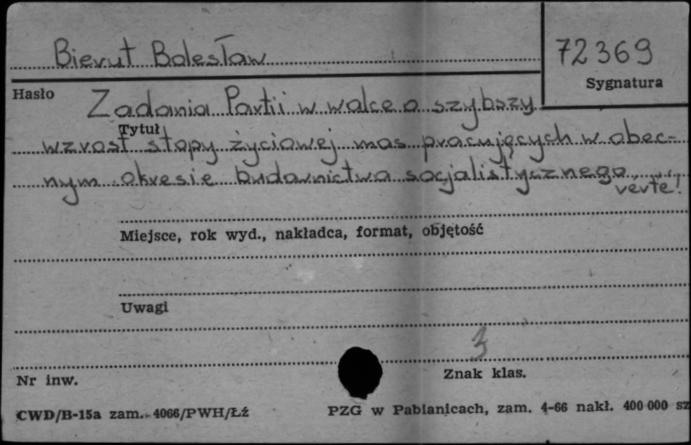 Bierut Bolesław
72369
Sygnatura
Hasło
Zadania Partii w walce o szybszy
Tytuł
wzrost stopy życiowej mas pracujących w obec-
nym okresie budownictwa socjalistycznego,
verte!
Miejsce, rok wyd., nakładca, format, objętość
Uwagi
3
Nr inw.
Znak klas.
CWD/B-15a zam. 4066/PWH/Łź
PZG w Pabianicach, zam. 4-66 nakł. 400 000 sz